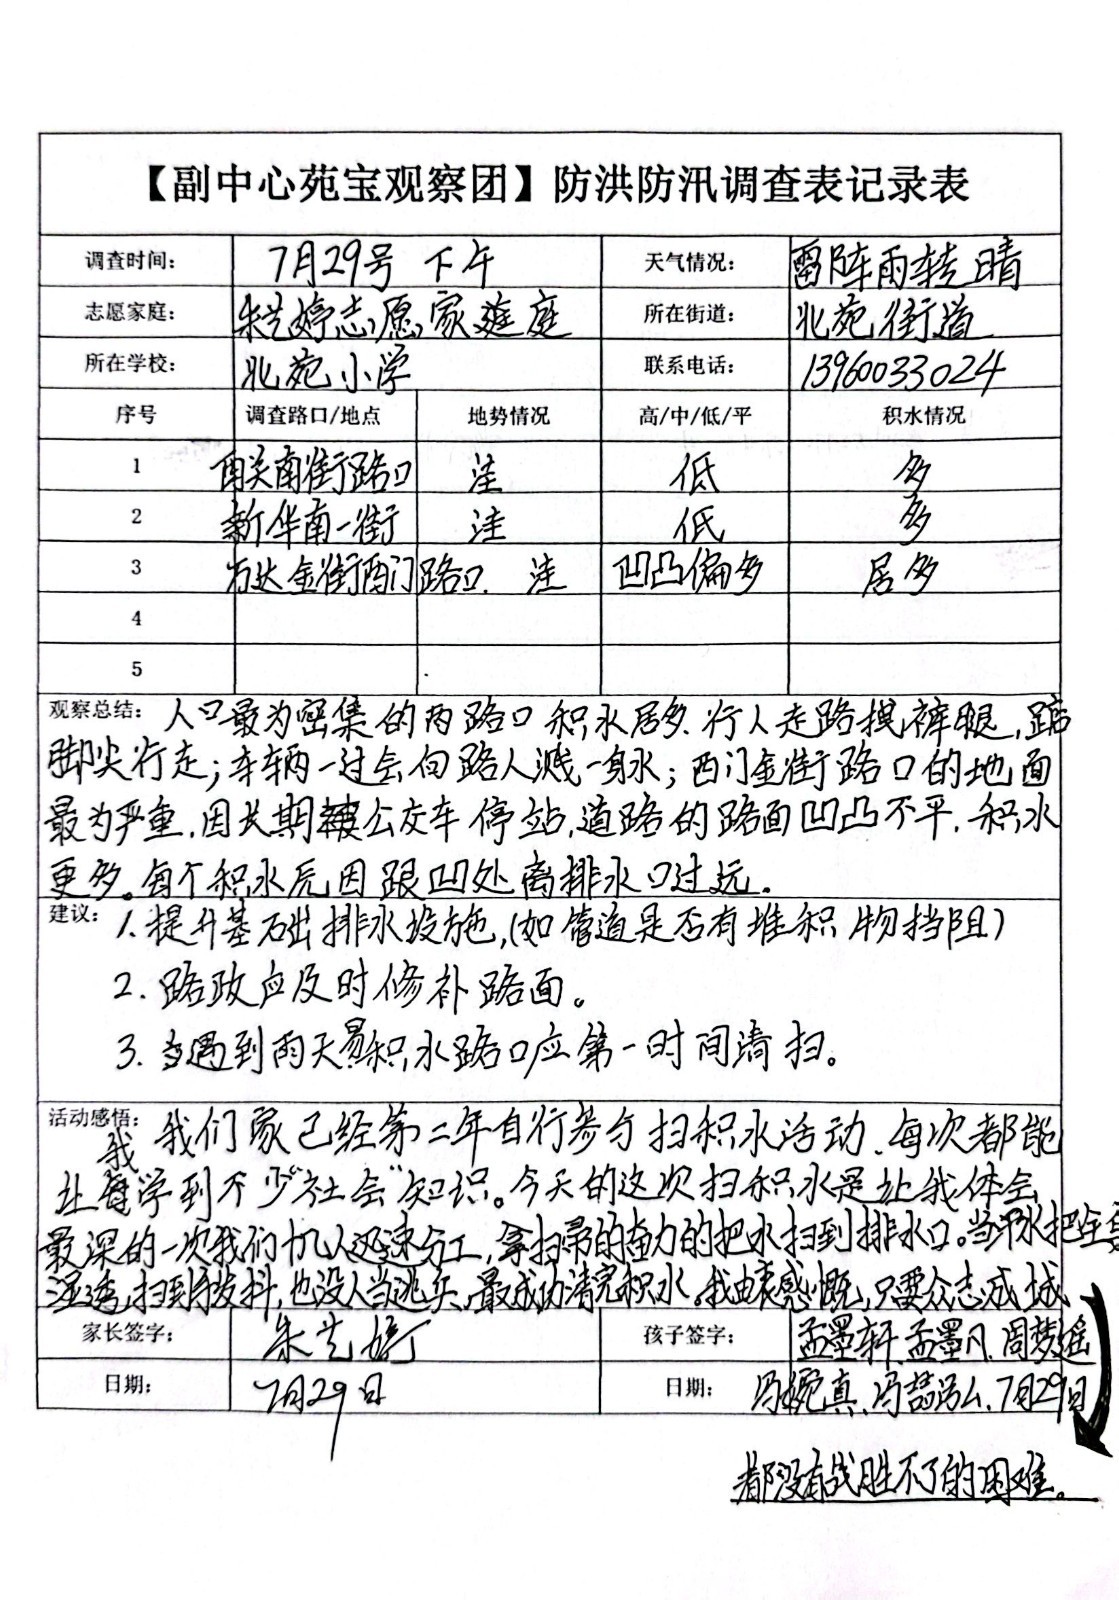 【副中心苑宝观察团】防洪防汛调查表记录表
调查时间： 7月29号 下午 天气情况： 雷阵雨转晴
志愿家庭： 朱艺婷志愿家庭庭 所在街道： 北苑街道
所在学校： 北苑小学 联系电话： 13960033024
序号 调查路口/地点 地势情况 高/中/低/平 积水情况
1 西关南街路口 洼 低 多
2 新华南一街 洼 低 多
3 万达金街西门路口. 洼 凹凸偏多 居多
4
5
观察总结： 人口最为密集的两路口积水居多.行人走路摸裤腿,踮
脚尖行走；车辆一过会向路人溅一身水；西门金街路口的地面
最为严重,因长期被公交车停站,道路的路面凹凸不平.积水
更多。每个积水 因 凹处离排水口过远.
建议： 1.提升基础排水设施,(如管道是否有堆积物挡阻)
2.路政应及时修补路面。
3.当遇到雨天易积水路口应第一时间清扫。
活动感悟： 我们家已经第二年自行参与扫积水活动.每次都能
让我学到不少“社会”知识。今天的这次扫积水是让我体会
最深的一次我们九人迅速分工,拿扫帚的奋力的把水扫到排水口。当雨水把全身
湿透,扫到 发抖,也没人当逃兵,最成功清完积水。我由衷感慨,只要众志成城
家长签字： 朱艺婷 孩子签字： 孟墨轩.孟墨凡.周梦遥
日期： 7月29日 日期： 冯婉真.冯喆 .7月29日
都没有战胜不了的困难。